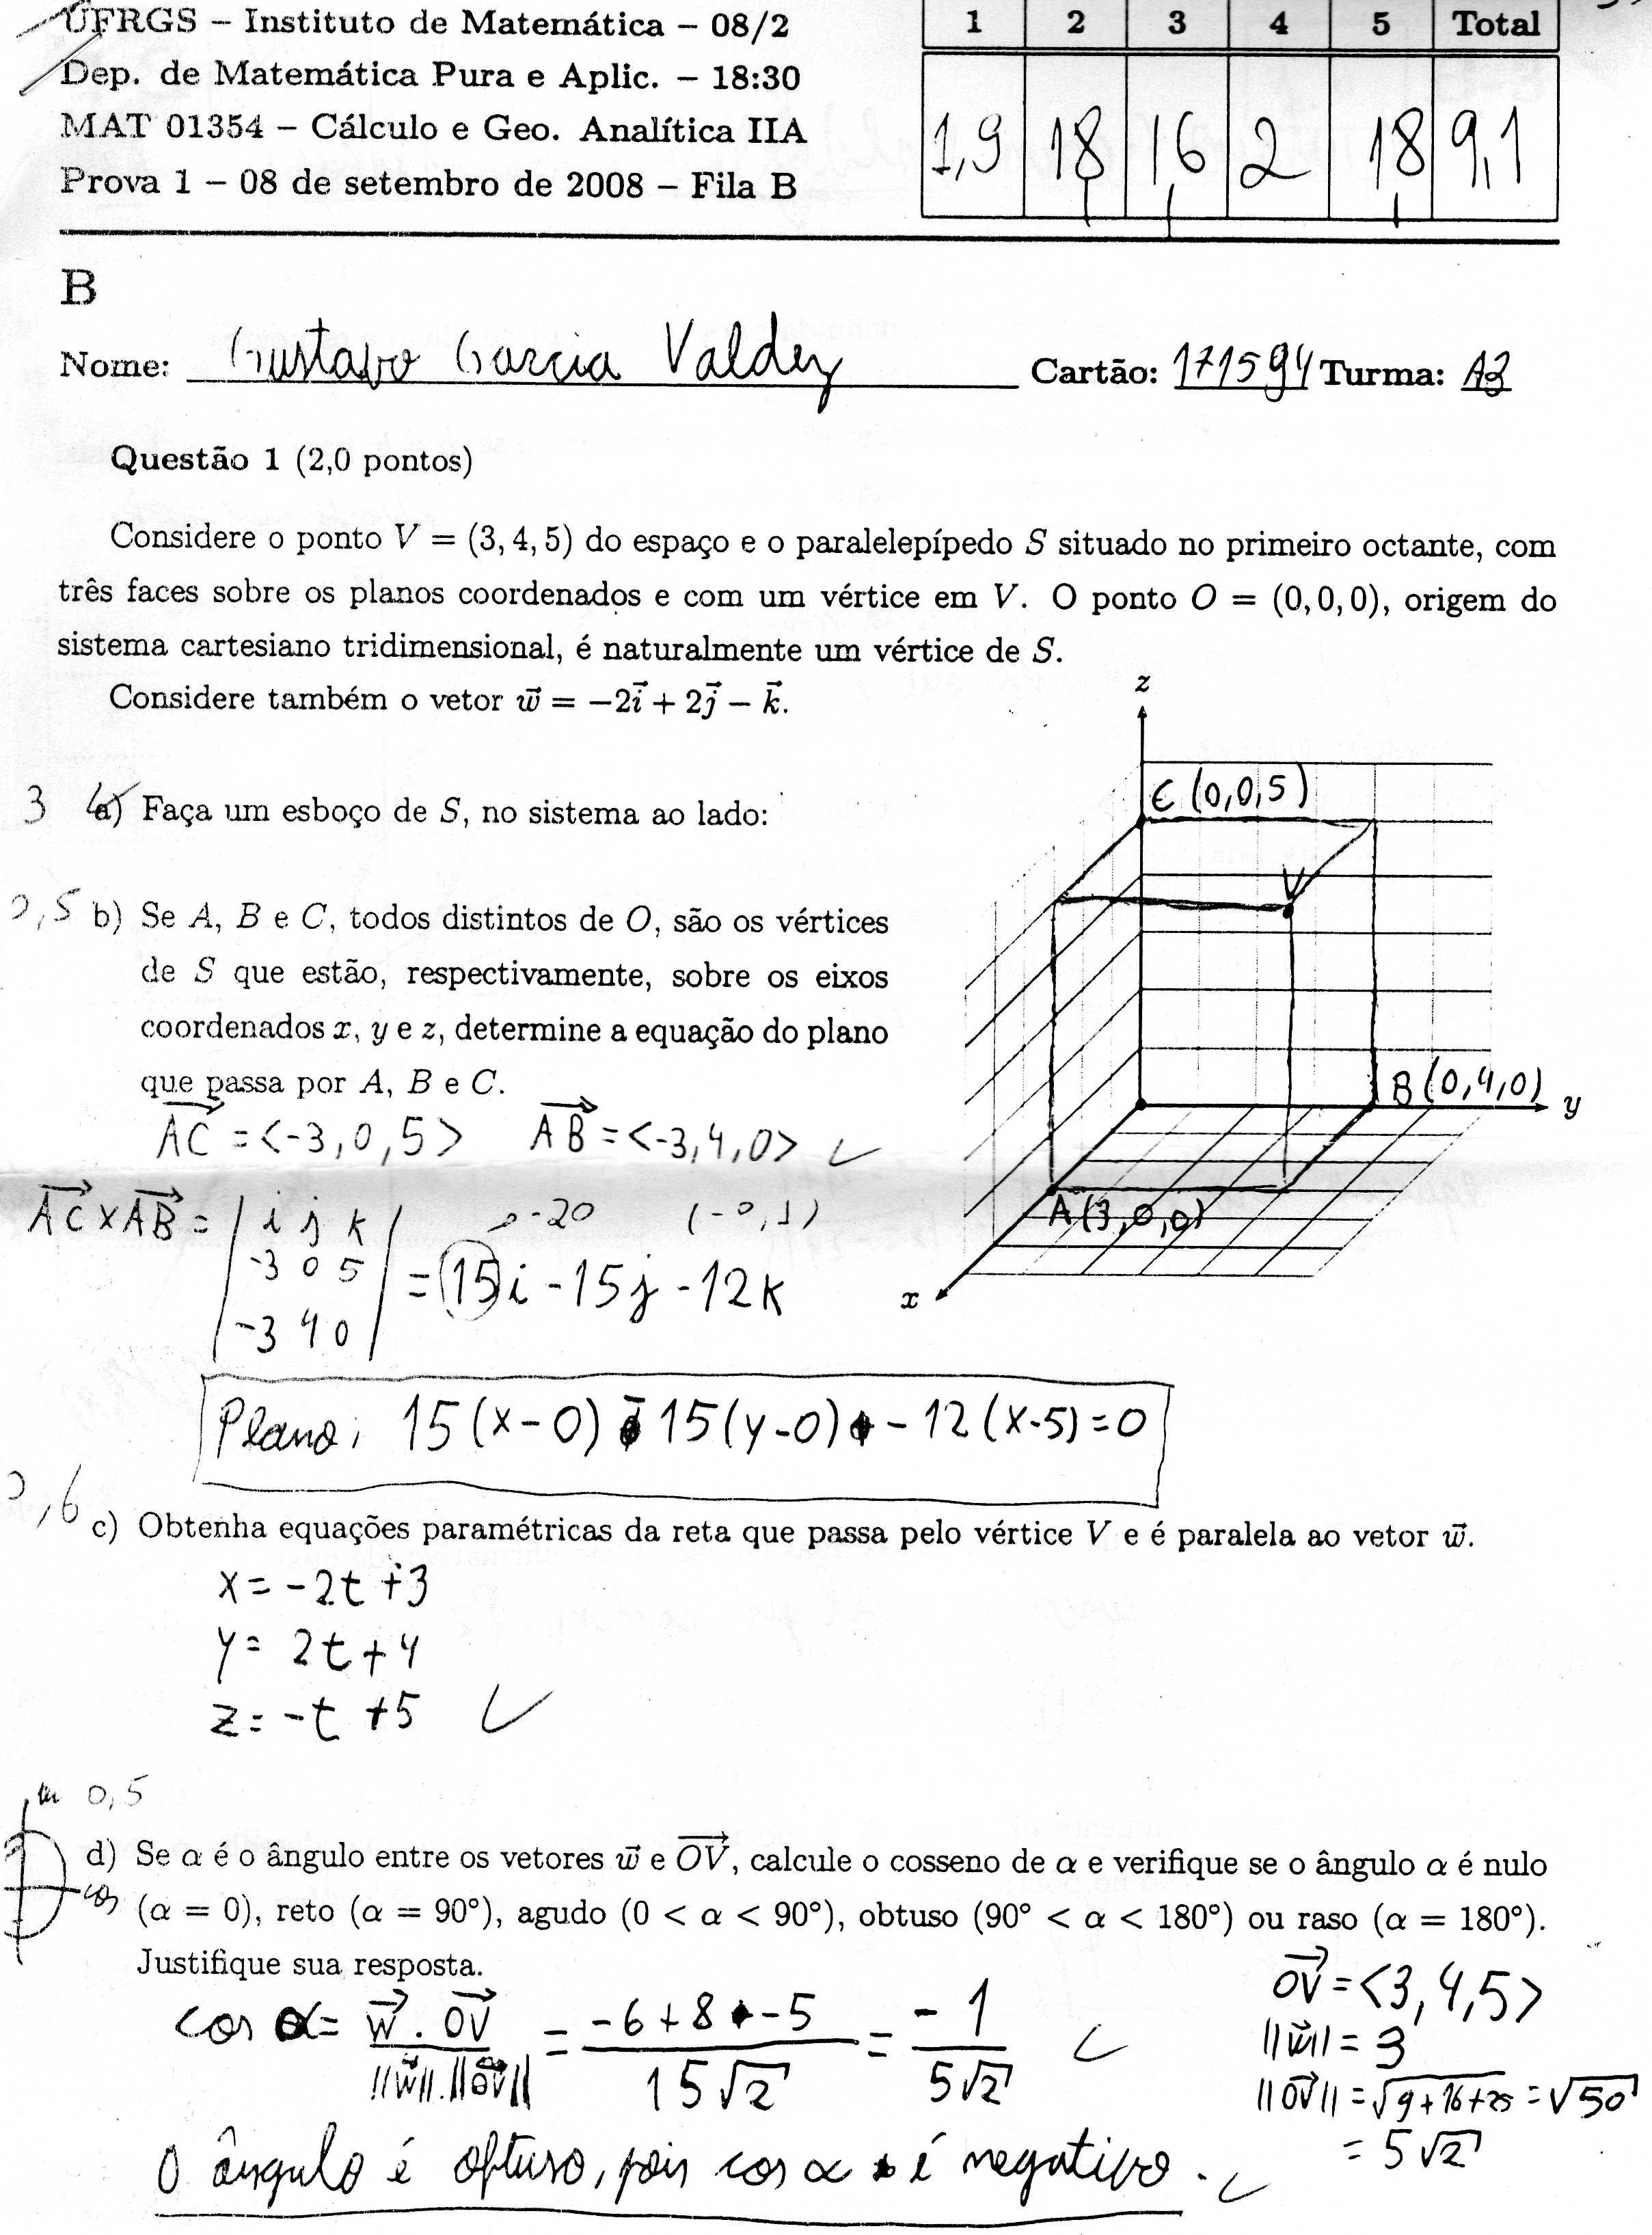 UFRGS – Instituto de Matemática – 08/2
Dep. de Matemática Pura e Aplic. – 18:30
MAT 01354 – Cálculo e Geo. Analítica IIA
Prova 1 – 08 de setembro de 2008 – Fila B
1 2 3 4 5 Total
1,9 1,8 1,6 2 1,8 9,1
B
Nome: Gustavo Garcia Valdez Cartão: 171594 Turma: A3
Questão 1 (2,0 pontos)
Considere o ponto V = (3, 4, 5) do espaço e o paralelepípedo S situado no primeiro octante, com
três faces sobre os planos coordenados e com um vértice em V. O ponto O = (0, 0, 0), origem do
sistema cartesiano tridimensional, é naturalmente um vértice de S.
Considere também o vetor w⃗ = −2i⃗ + 2j⃗ − k⃗.
z
C (0,0,5)
3 a) Faça um esboço de S, no sistema ao lado:
V
0,5 b) Se A, B e C, todos distintos de O, são os vértices
de S que estão, respectivamente, sobre os eixos
coordenados x, y e z, determine a equação do plano
que passa por A, B e C.
B (0,4,0) y
AC⃗ = <-3, 0, 5> AB⃗ = <-3, 4, 0>
A (3,0,0)
x
-20 (-0,1)
AC⃗ × AB⃗ = | i j k |
| -3 0 5 | = 15i - 15j - 12k
| -3 4 0 |
Plano: 15(x-0) - 15(y-0) - 12(x-5) = 0
0,6 c) Obtenha equações paramétricas da reta que passa pelo vértice V e é paralela ao vetor w⃗.
x = -2t + 3
y = 2t + 4
z = -t + 5
0,5
d) Se α é o ângulo entre os vetores w⃗ e OV⃗, calcule o cosseno de α e verifique se o ângulo α é nulo
cos
(α = 0), reto (α = 90°), agudo (0 < α < 90°), obtuso (90° < α < 180°) ou raso (α = 180°).
Justifique sua resposta.
cos α = w⃗ . OV⃗ / ||w⃗||.||OV⃗|| = -6 + 8 - 5 / 15√2 = -1 / 5√2
OV⃗ = <3, 4, 5>
||w⃗|| = 3
||OV⃗|| = √9+16+25 = √50
= 5√2
O ângulo é obtuso, pois cos α é negativo.